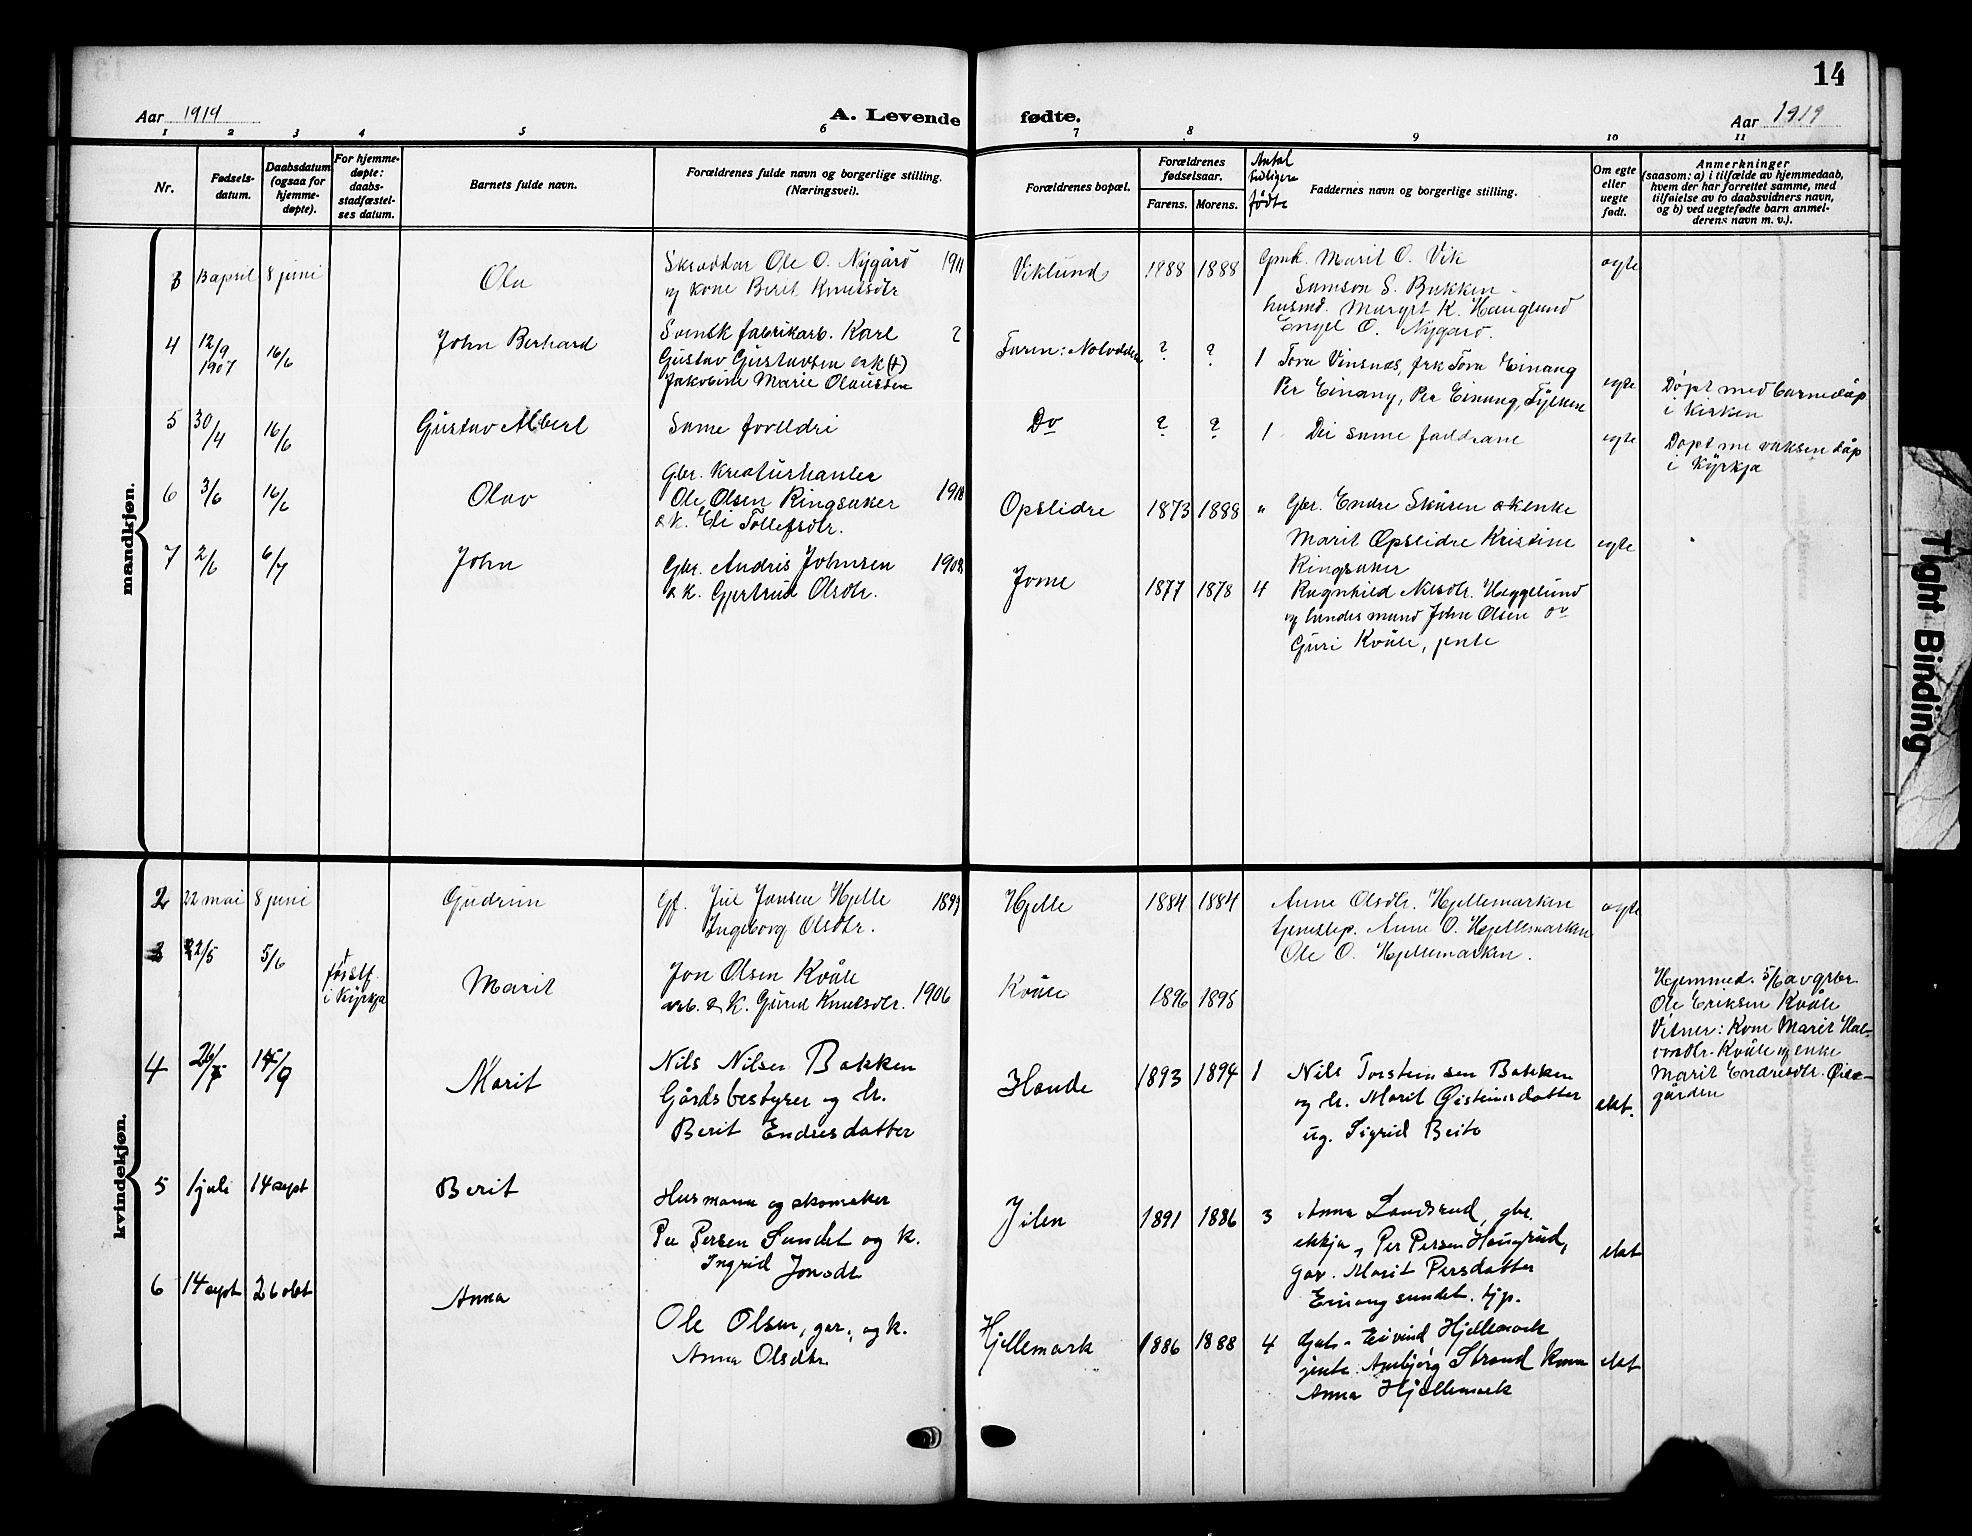 14
Aar 1919
A. Levende fødte.
Aar 1919
1 2 3 4 5 6 7 8 9 10 11
Nr.
Fødsels-
datum.
Daabsdatum
(ogsaa for
hjemme-
døpte).
For hjemme-
døpte:
daabs-
stadfæstel-
ses datum.
Barnets fulde navn.
Forældrenes fulde navn og borgerlige stilling.
(Næringsvei).
Forældrenes bopæl.
Forældrenes
fødselsaar.
Farens. Morens.
Antal
tidligere
fødte
Faddernes navn og borgerlige stilling.
Om egte
eller
uegte
født.
Anmerkninger
(saasom: a) i tilfælde av hjemmedaab,
hvem der har forrettet samme, med
tilføielse av to daabsvidners navn,
og b) ved uegtefødte barn anmel-
derens navn m. v.).
mandkjøn.
3 13 april 8 juni Ola
Skræddar Ole O. Nygård 1911
og kone Berit Knutsdtr
Viklund 1888 1888 1
Gmk. Marit O. Vik
Samson S. Bakken
husmd. Margit K. Hauglund
Engel O. Nygård.
egte
4 12/9 1907 16/6 John Berhard
Svensk fabrikarb. Karl ?
Gustav Gustavsen o k (†)
Jakobine Marie Olausden
Faren: Notodden ? ? 1
Tora Vinsnes, frk Tora Einang
Per Einang, Per Einang, Fylken
egte
Døpt med barnedåp
i kirken
5 30/4 16/6 Gustav Albert
Same foreldri
Do ? ? 1
Dei same faddrane
egte
Døpt me vaksen dåp
i Kyrkja
6 3/6 16/6 Olav
Gbr. Kreaturhanler
Ole Olsen Ringsaker 1918
o k. Eli Tollefsdtr.
Opslidre 1873 1888 "
Gbr. Endre Skåsen o k enke
Marit Opslidre Kristine
Ringsaker
egte
7 2/6 6/7 John
Gbr. Andris Johnsen 1908
o k. Gjertrud Olsdtr.
Jome 1877 1878 4
Ragnhild Nilsdtr. Heggelund
og landesmand John Olsen Do
Guri Kvåle, jente
kvindekjøn.
2 22 mai 8 juni Gudrun
Gf. Jul Jansen Hjelle 1899
Ingeborg Olsdtr.
Hjelle 1884 1884
Anne Olsdtr. Hjellemarken
tjenestep. Anne O. Hjellemarken
Ole O. Hjellemarken.
egte
3 22/5 5/6
i Kyrkja
Marit
Jon Olsen Kvåle
arb. & K. Gurid Knutsdtr. 1906
Kvåle 1896 1895
Hjemmed. 5/6 av gbr.
Ole Eriksen Kvåle
Vitner: Kone Marit Hal-
vordtr. Kvåle og enke
Marit Endresdtr. Øiae-
gården
4 26/7 14/9 Marit
Nils Nilsen Bakken
Gårdsbestyrer og h.
Berit Endresdatter
Haande 1893 1894 1
Nils Torsteinsen Bakken
og h. Marit Gisteinsdatter
ug. Sigrid Beito
ekt.
5 1 juli 14 sept Berit
Husmann og skomaker
Per Persen Sundet og k.
Ingrid Jonsdt
Jilen 1891 1886 3
Anna Landsrud, gbr.
ekkja, Per Persen Haugrud,
gar. Marit Persdatter
Einangsundet. tjp.
ekt
6 14 sept 26 okt Anna
Ole Olsen, gar., og k.
Anna Olsdtr.
Hjellemark 1886 1888 4
Gut. Eivind Hjellemark
jente. Ambjørg Strand Kona
Anna Hjellemark
ekt
Tight Binding